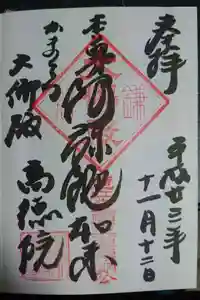 奉拝
平成廿三年
十一月十二日
本尊阿弥陀如来
かまくら
大御佛
高徳院